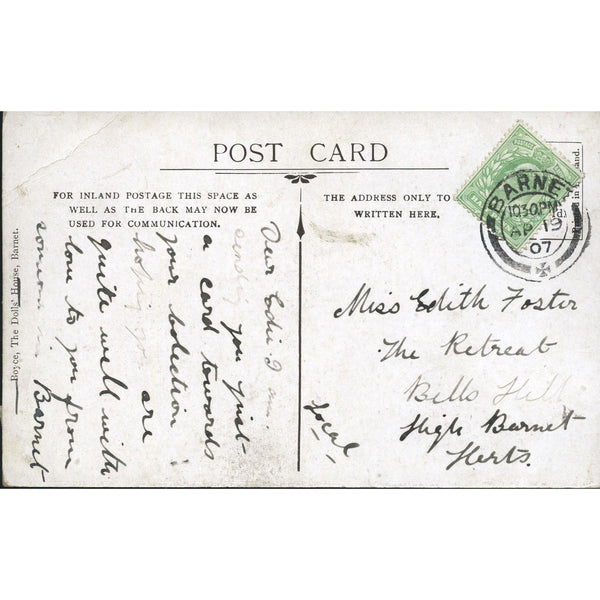 POST CARD
FOR INLAND POSTAGE THIS SPACE AS
WELL AS THE BACK MAY NOW BE
USED FOR COMMUNICATION.
THE ADDRESS ONLY TO BE
WRITTEN HERE.
Boyce, The Dolls' House, Barnet.
Dear Edi I am
sending you just
a card towards
your collection
hoping you are
quite well with
love to you from
someone in Barnet
local
Miss Edith Foster
The Retreat
Bells Hill
High Barnet
Herts.
BARNET
10 30 PM
AP 19
07